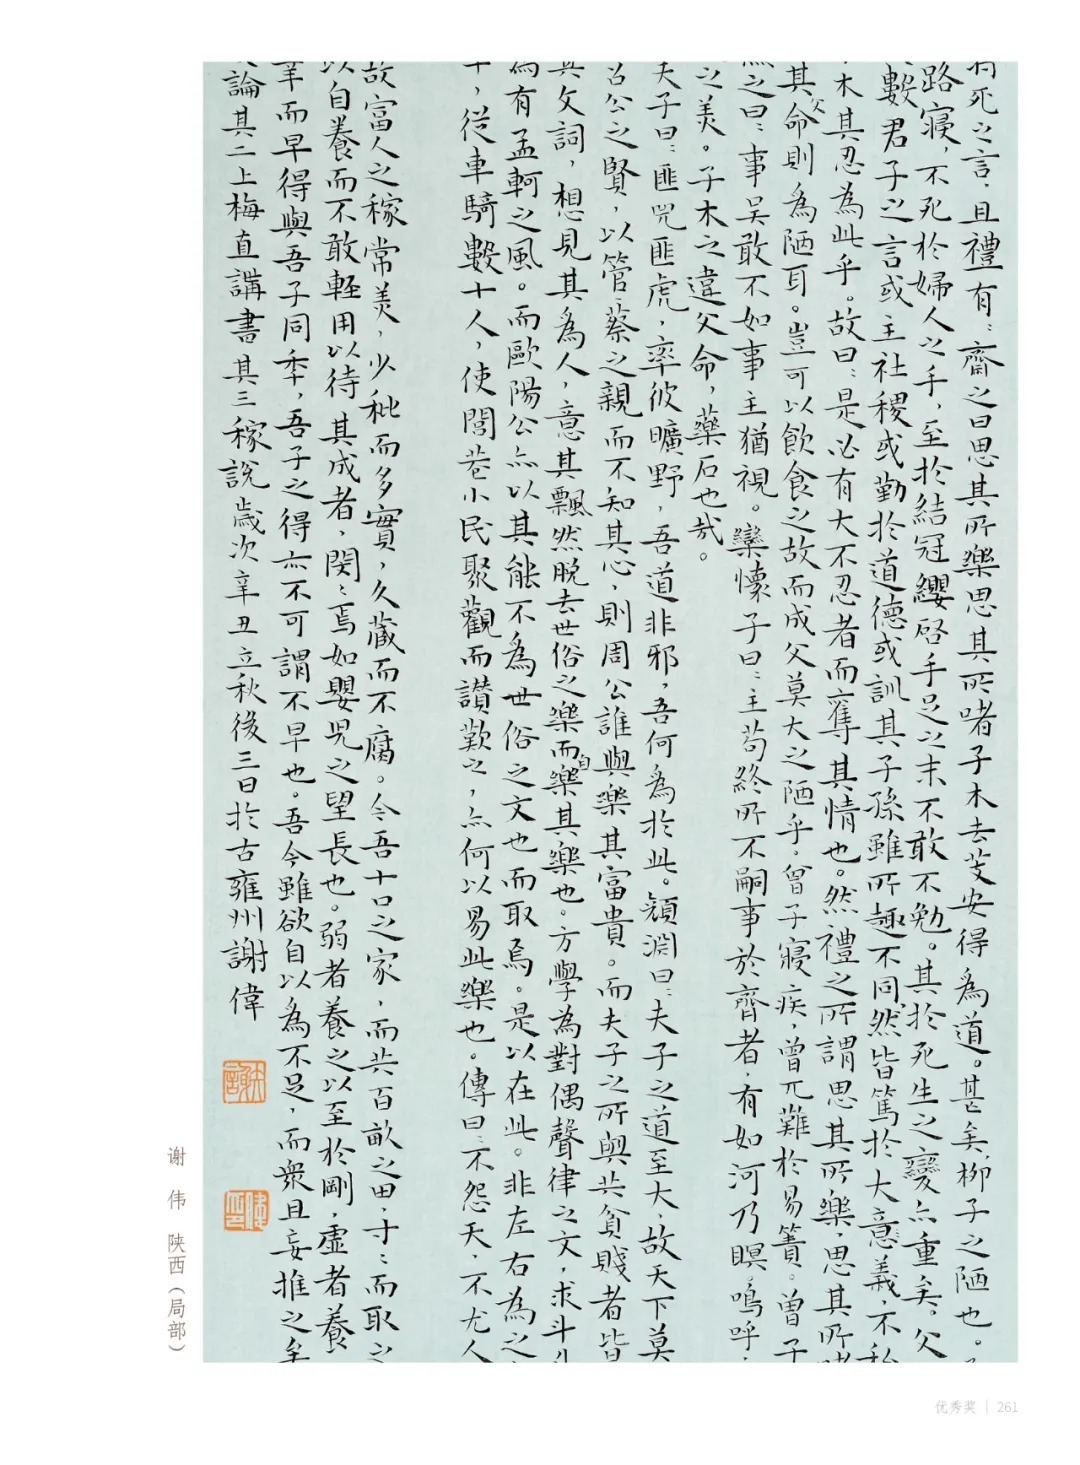 將死之言，且禮有：齋之日思其所樂思其所嗜子木去芰安得為道。甚矣，柳子之陋也。
路寢，不死於婦人之手，至於結冠纓啓手足之末不敢不勉。其於死生之變亦重矣。父
數君子之言或主社稷或勤於道德或訓其子孫雖所趣不同，然皆篤於大意義，不私
木其忍為此乎。故曰：是必有大不忍者而奪其情也。然禮之所謂思其所樂，思其所嗜
其父命則為陋耳。豈可以飲食之故而成父莫大之陋乎，曾子寢疾，曾兀難於易簀。曾子
之曰：事吳敢不如事主猶視。欒懷子曰：主苟終所不嗣事於齊者，有如河乃瞑。嗚呼，
之美。子木之違父命，藥石也哉。
夫子曰：匪兕匪虎，率彼曠野，吾道非邪，吾何為於此。顏淵曰：夫子之道至大，故天下莫
召公之賢，以管蔡之親而不知其心，則周公誰與樂其富貴。而夫子之所與共貧賤者皆
其文詞，想見其為人，意其飄然脫去世俗之樂而自樂其樂也。方學為對偶聲律之文，求斗
為有孟軻之風。而歐陽公亦以其能不為世俗之文也而取焉。是以在此。非左右為之
年，從車騎數十人，使閭巷小民聚觀而讚歎之，亦何以易此樂也。傳曰：不怨天，不尤人
故富人之稼常美，少秕而多實，久藏而不腐。今吾十口之家，而共百畝之田，寸：而取之
以自養而不敢輕用以待其成者，閔：焉如嬰兒之望長也。弱者養之以至於剛，虛者養
幸而早得與吾子同年，吾子之得亦不可謂不早也。吾今雖欲自以為不足，而衆且妄推之矣
論其二上梅直講書其三稼說歲次辛丑立秋後三日於古雍州謝偉
谢伟 陕西（局部）
优秀奖 | 261